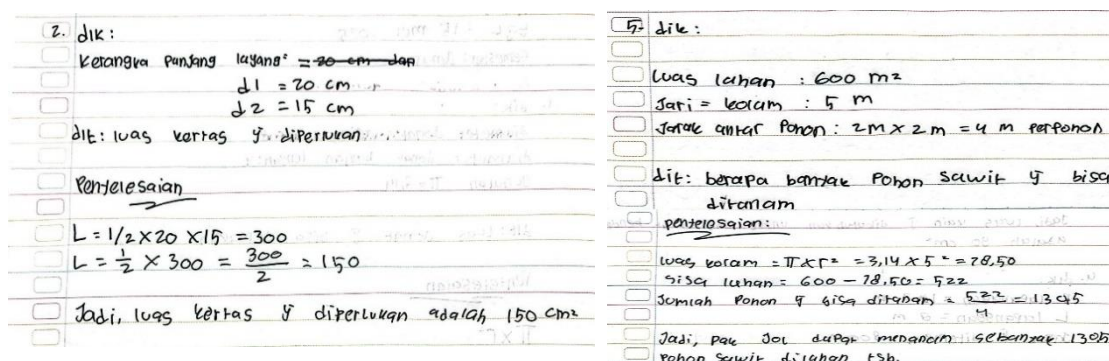 2. dik :
Kerangka Panjang layang² = 20 cm dan
d1 = 20 cm
d2 = 15 cm
dit : luas kertas yg diperlukan.
Penyelesaian
L = 1/2 x 20 x 15 = 300
L = 1/2 x 300 = 300/2 = 150
Jadi, luas kertas yg diperlukan adalah 150 cm²
5. dik :
Luas lahan : 600 m²
Jari = kolam : 5 m
Jarak antar Pohon : 2m x 2 m = 4 m perpohon
dit : berapa banyak Pohon sawit yg bisa
ditanam
penyelesaian :
Luas kolam = π x r² = 3,14 x 5² = 78,50
Sisa lahan = 600 - 78,50 = 522
Jumlah Pohon yg bisa ditanam = 522/4 = 1305
Jadi, pak Joi dapat menanam sebanyak 1305
Pohon sawit dilahan tsb.